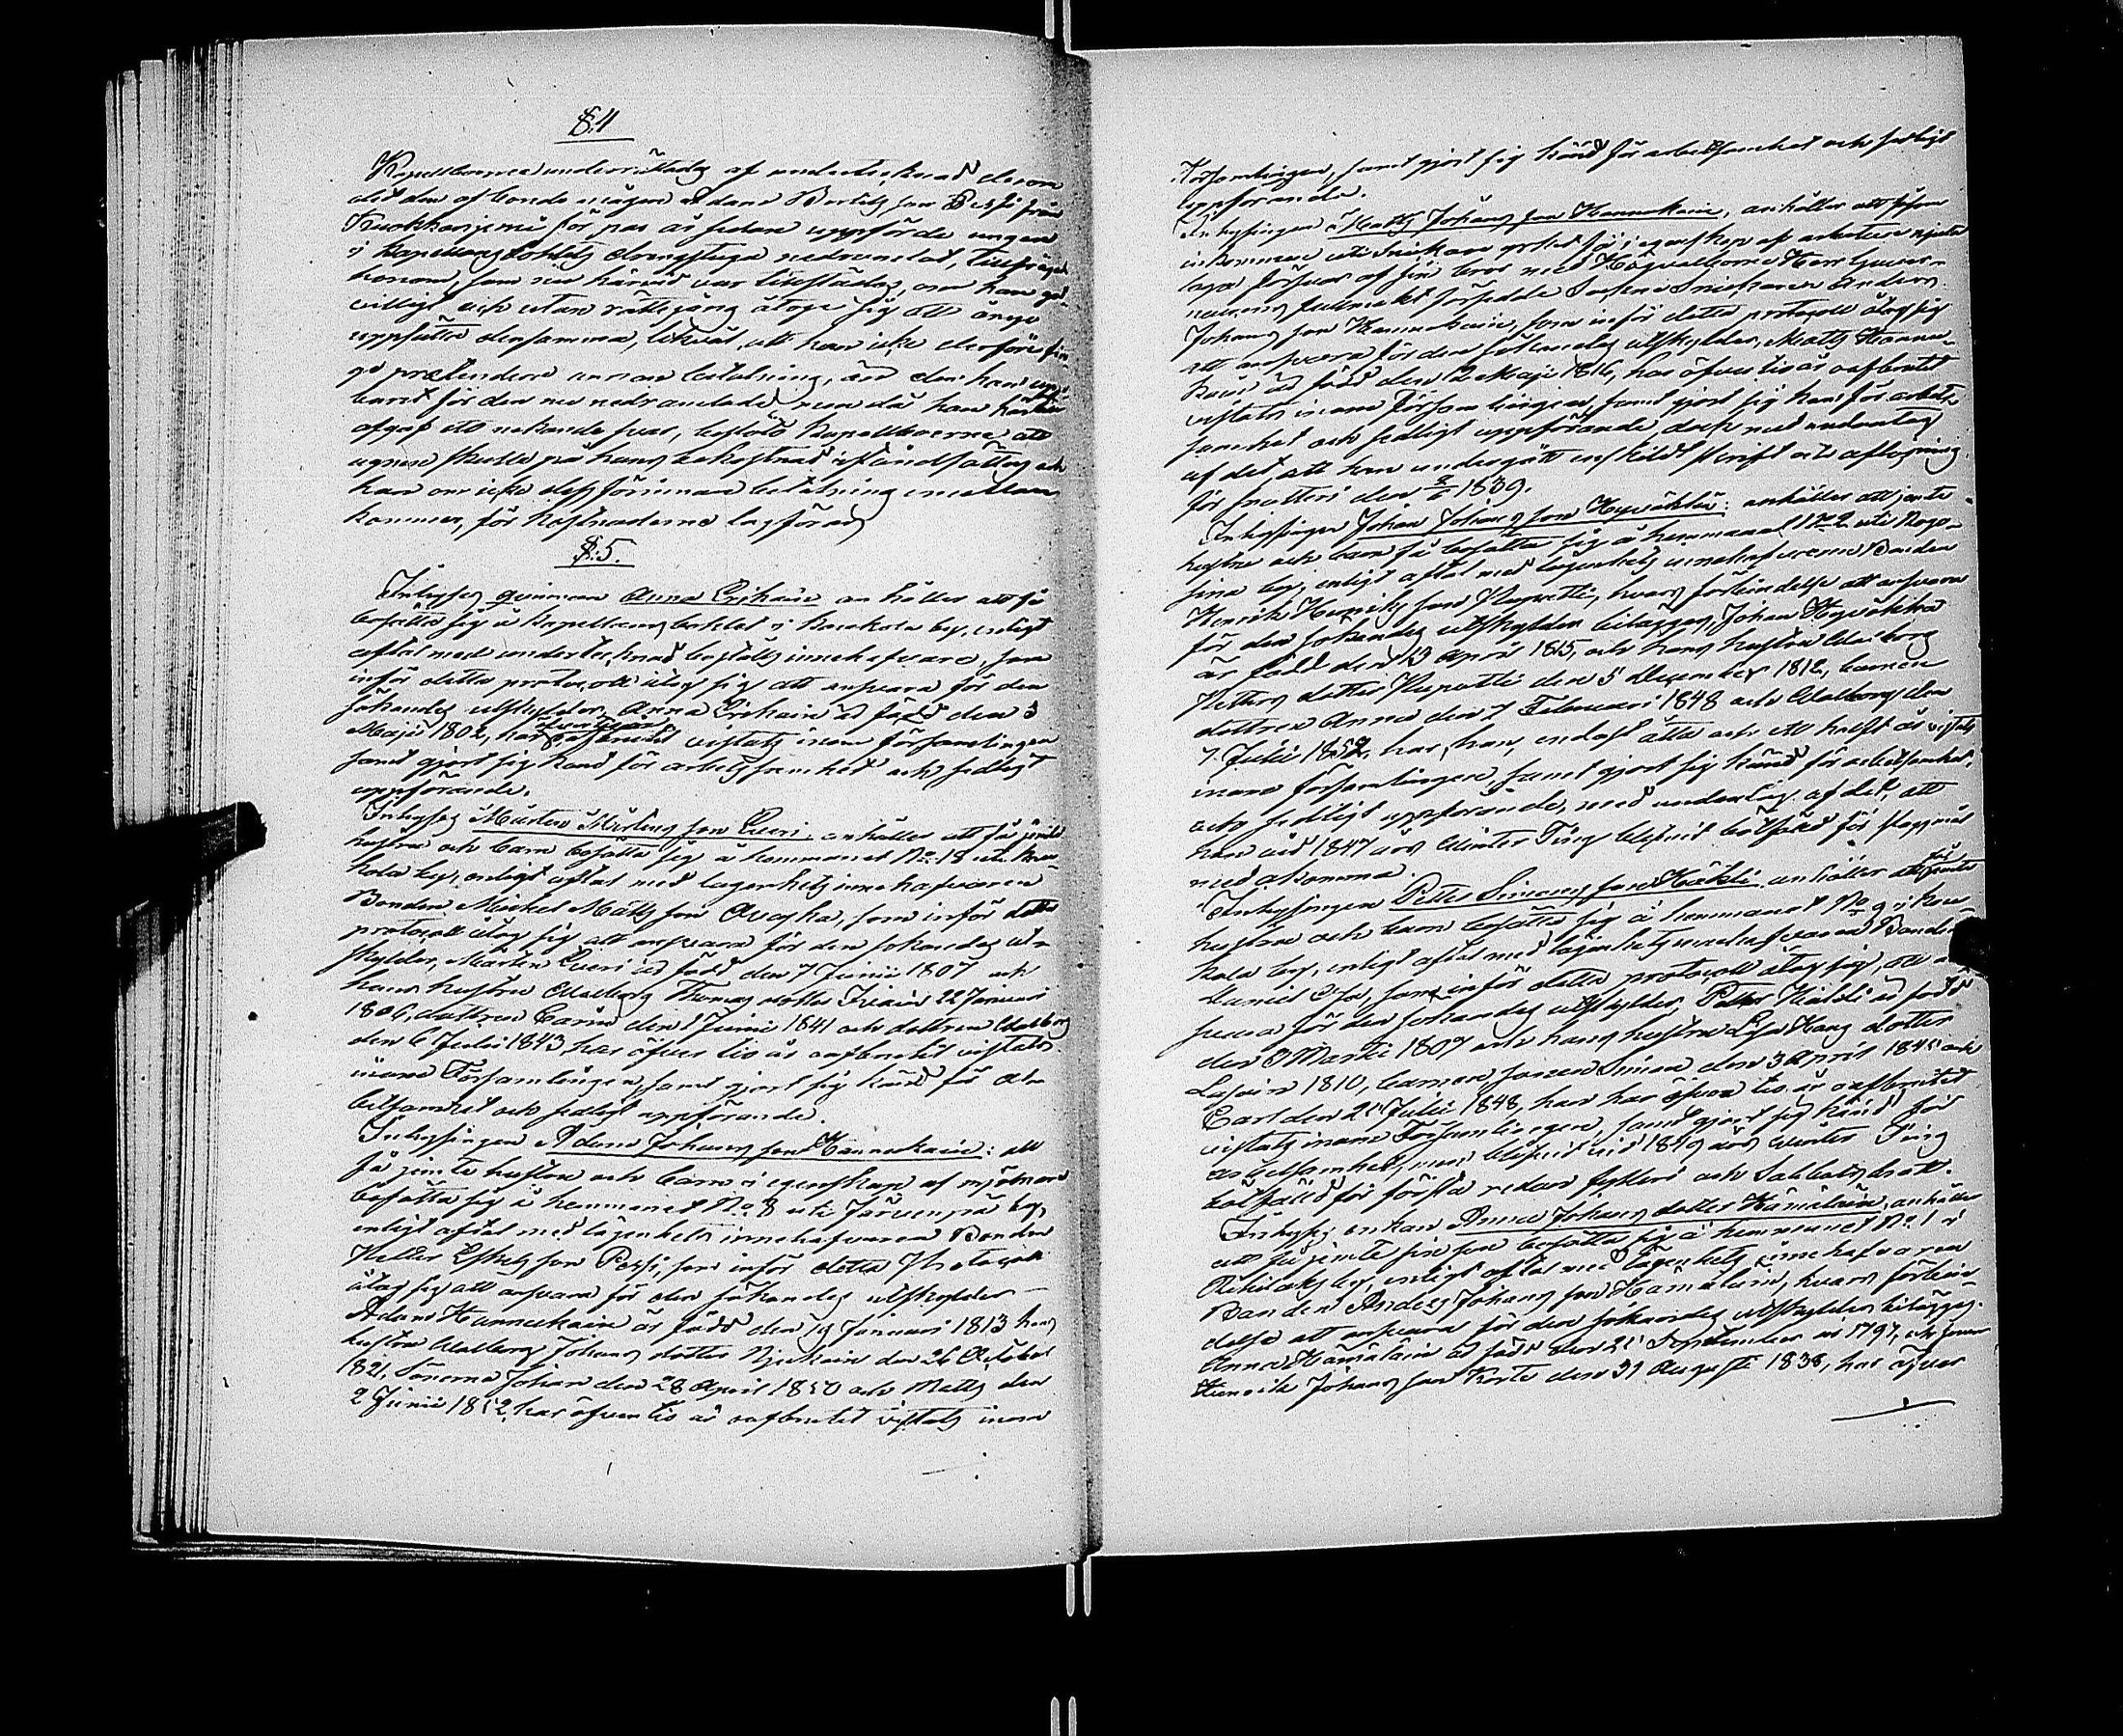 §.4
Kapellboerne underrättades af undertecknad derom
att den af bonde mågen Adam Bertils son Pessi från
Kuokkaniemi för par år sedan uppförde ungen
i Kapellansbohlets drängstuga nedramlat, tillfrågad
honom, som nu härvid var tillstädes, om han god-
villigt och utan rättegång åtoge sig att ånyo
uppsätta densamma, likväl att han icke derföre fin-
ge prætendera annan betalning, än den han upp-
burit för den nu nedramlade, men då han härtill
afgaf ett nekande svar, beslöto Kapellboerne att
ugnen skulle på hans bekostnad iståndsättas och
han om icke dessförinnan betalning emellan
kommer, för kostnaderne lagföras
§.5.
Inhyses qvinnan Anna Erikain anhåller att få
besätta sig å Kapellansbohlet i Kaukola by, enligt
aftal med undertecknad boställs innehafvare, som
inför detta protocoll åtog sig att ansvara för den
sökandes utskylder, Anna Erikain är född den 3
Maji 1802, har öfver tio år oafbrutit vistats inom församlingen
samt gjort sig känd för arbetssamhet och sedligt
uppförande.
Inhyses Mårten Mårtens son Queri anhåller att få jemte
hustru och barn besätta sig å hemmanet No 18 uti Kau-
kola by, enligt aftal med lägenhets innehafvaren
Bonden Mickel Matts son Avojha, som inför detta
protocoll åtog sig att ansvara för den sökandes ut-
skylder, Mårten Queri är född den 7 Junii 1807 och
hans hustru Walborg Thomas dotter 22 Januari
1806, dottren Carin den 1 Junii 1841 och dottren Walborg
den 6 Julii 1843, har öfver tio år oafbrutit vistats
inom Församlingen, samt gjort sig känd för ar-
betsamhet och sedligt uppförande.
Inhysingen Adam Johans son Hannukain: att
få jemte hustru och barn i egenskap af mjölnare
besätta sig å hemmanet No 8 uti Järvenpä by,
enligt aftal med lägenhets innehafvaren Bonden
Petter Eskels son Pessi, som inför detta Protocoll
åtog sig att ansvara för den sökandes utskylder —
Adam Hannukain är född den 19 Januari 1813 hans
hustru Walborg Johans dotter den 26 October
1821, Sönerna Johan den 28 April 1850 och Matts den
2 Junii 1852, har öfver tio år oafbrutit vistats inom
Församlingen, samt gjort sig känd för arbetsamhet och sedligt
uppförande.
Inhysingen Matts Johans son Hannukain, anhåller att såsom
inkommen uti Snickare yrket få i egenskap af arbetare njuta
laga försvar af sin bror med Högvälborne Herr Guver-
neurens fullmakt försedde Sockne Snickaren Anders
Johans son Hannukain, som inför detta protocoll åtog sig
att ansvara för den sökandes utskylder, Matts Hannu-
kain är född den 12 Maji 1816, har öfver tio år oafbrutit
vistats inom Församlingen, samt gjort sig känd för arbet-
samhet och sedligt uppförande, dock med undantag
af det, att han undergått enskildt skrift och aflösning
för snatteri den 2/6 1839.
Inhysingen Johan Johans son Hyväkkä: anhåller att jemte
hustru och barn få besätta sig å hemmanet No 2 uti Rogo-
sina by, enligt aftal med lägenhets innehafvaren Bonden
Henrik Henriks son Puputti, hvars förbindelse att ansvara
för den sökandes utskylder bilägges, Johan Hyväkkä
är född den 13 April 1815, och hans hustru Walborg
Petters dotter Puputti den 5 December 1812, barnen
dottren Anna den 7 Februari 1848 och Walborg den
7 Julii 1852, har han endast åtta och ett halft år vistats
inom församlingen, samt gjort sig känd för arbetsamhet,
och sedligt uppförande, med undantag af det, att
han vid 1847 års Winter Ting blifvit bötfälld för slagsmål
med akomma.
Inhysingen Petter Simons son Käkli anhåller att få jemte
hustru och barn besätta sig å hemmanet No 9 i Kau-
kola by, enligt aftal med lägenhets innehafvaren Bonden
Daniel Oja, som inför detta protocoll åtog sig, att an-
svara för den sökandes utskylder, Petter Käkli är född
den 3 Martii 1807 och hans hustru Lisa Hans dotter
1810, barnen sonen Simon den 3 April 1845 och
Carl den 25 Julii 1848, han har öfver tio år oafbrutit
vistats inom Församlingen, samt gjort sig känd för
arbetsamhet, men blifvit vid 1849 års winter Ting
bötfälld för första resan fylleri och Sabbatsbrott.
Inhyses enkan Anna Johans dotter Hämäläin, anhåller
att få jemte sin son besätta sig å hemmanet No 1 i
by, enligt aftal med lägenhets innehafvaren
Bonden Anders Johans son Hämäläin, hvars förbin-
delse att ansvara för den sökandes utskylder bilägges.
Anna Hämäläin är född den 25 September år 1797, och sonen
Henrik Johans son den 31 Augusti 1838, har öfver